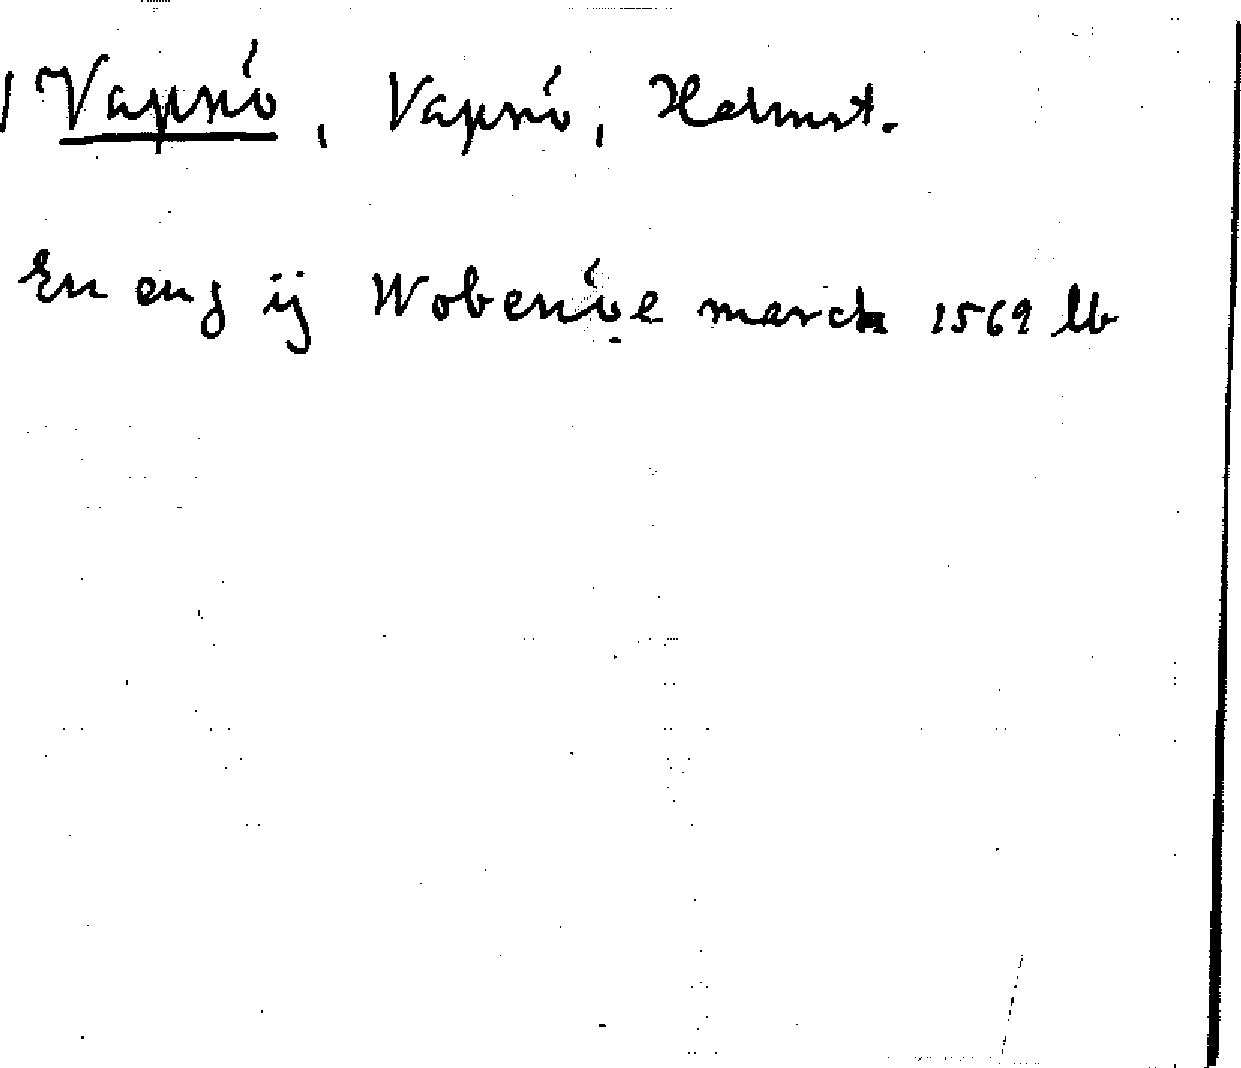 Vapnó, Vapnó, Halmst.
En eng ij Wobenóe marck 1569 lb